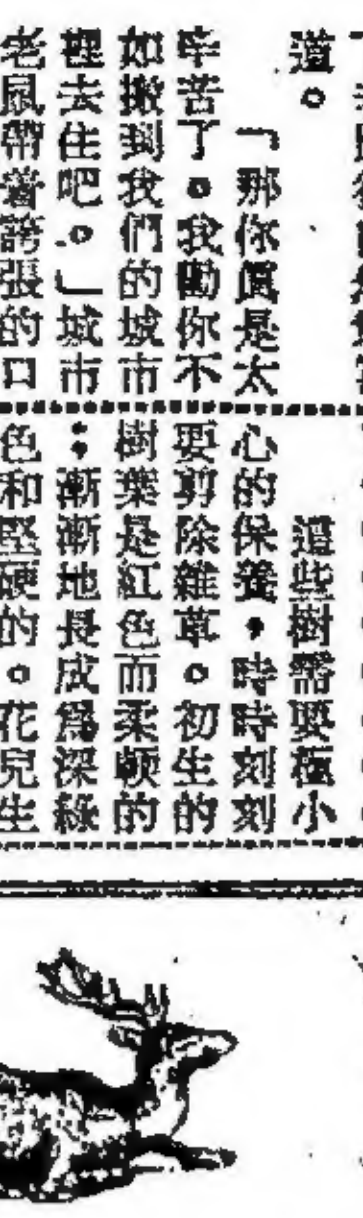 道。
「那你眞是太
辛苦了。我勸你不
如搬到我們的城市
裡去住吧。」城市
老鼠帶着誇張的口
這些樹需要極小
心的保養，時時刻刻
要剪除雜草。初生的
樹葉是紅色而柔軟的
：漸漸地長成爲深綠
色和堅硬的。花兒生